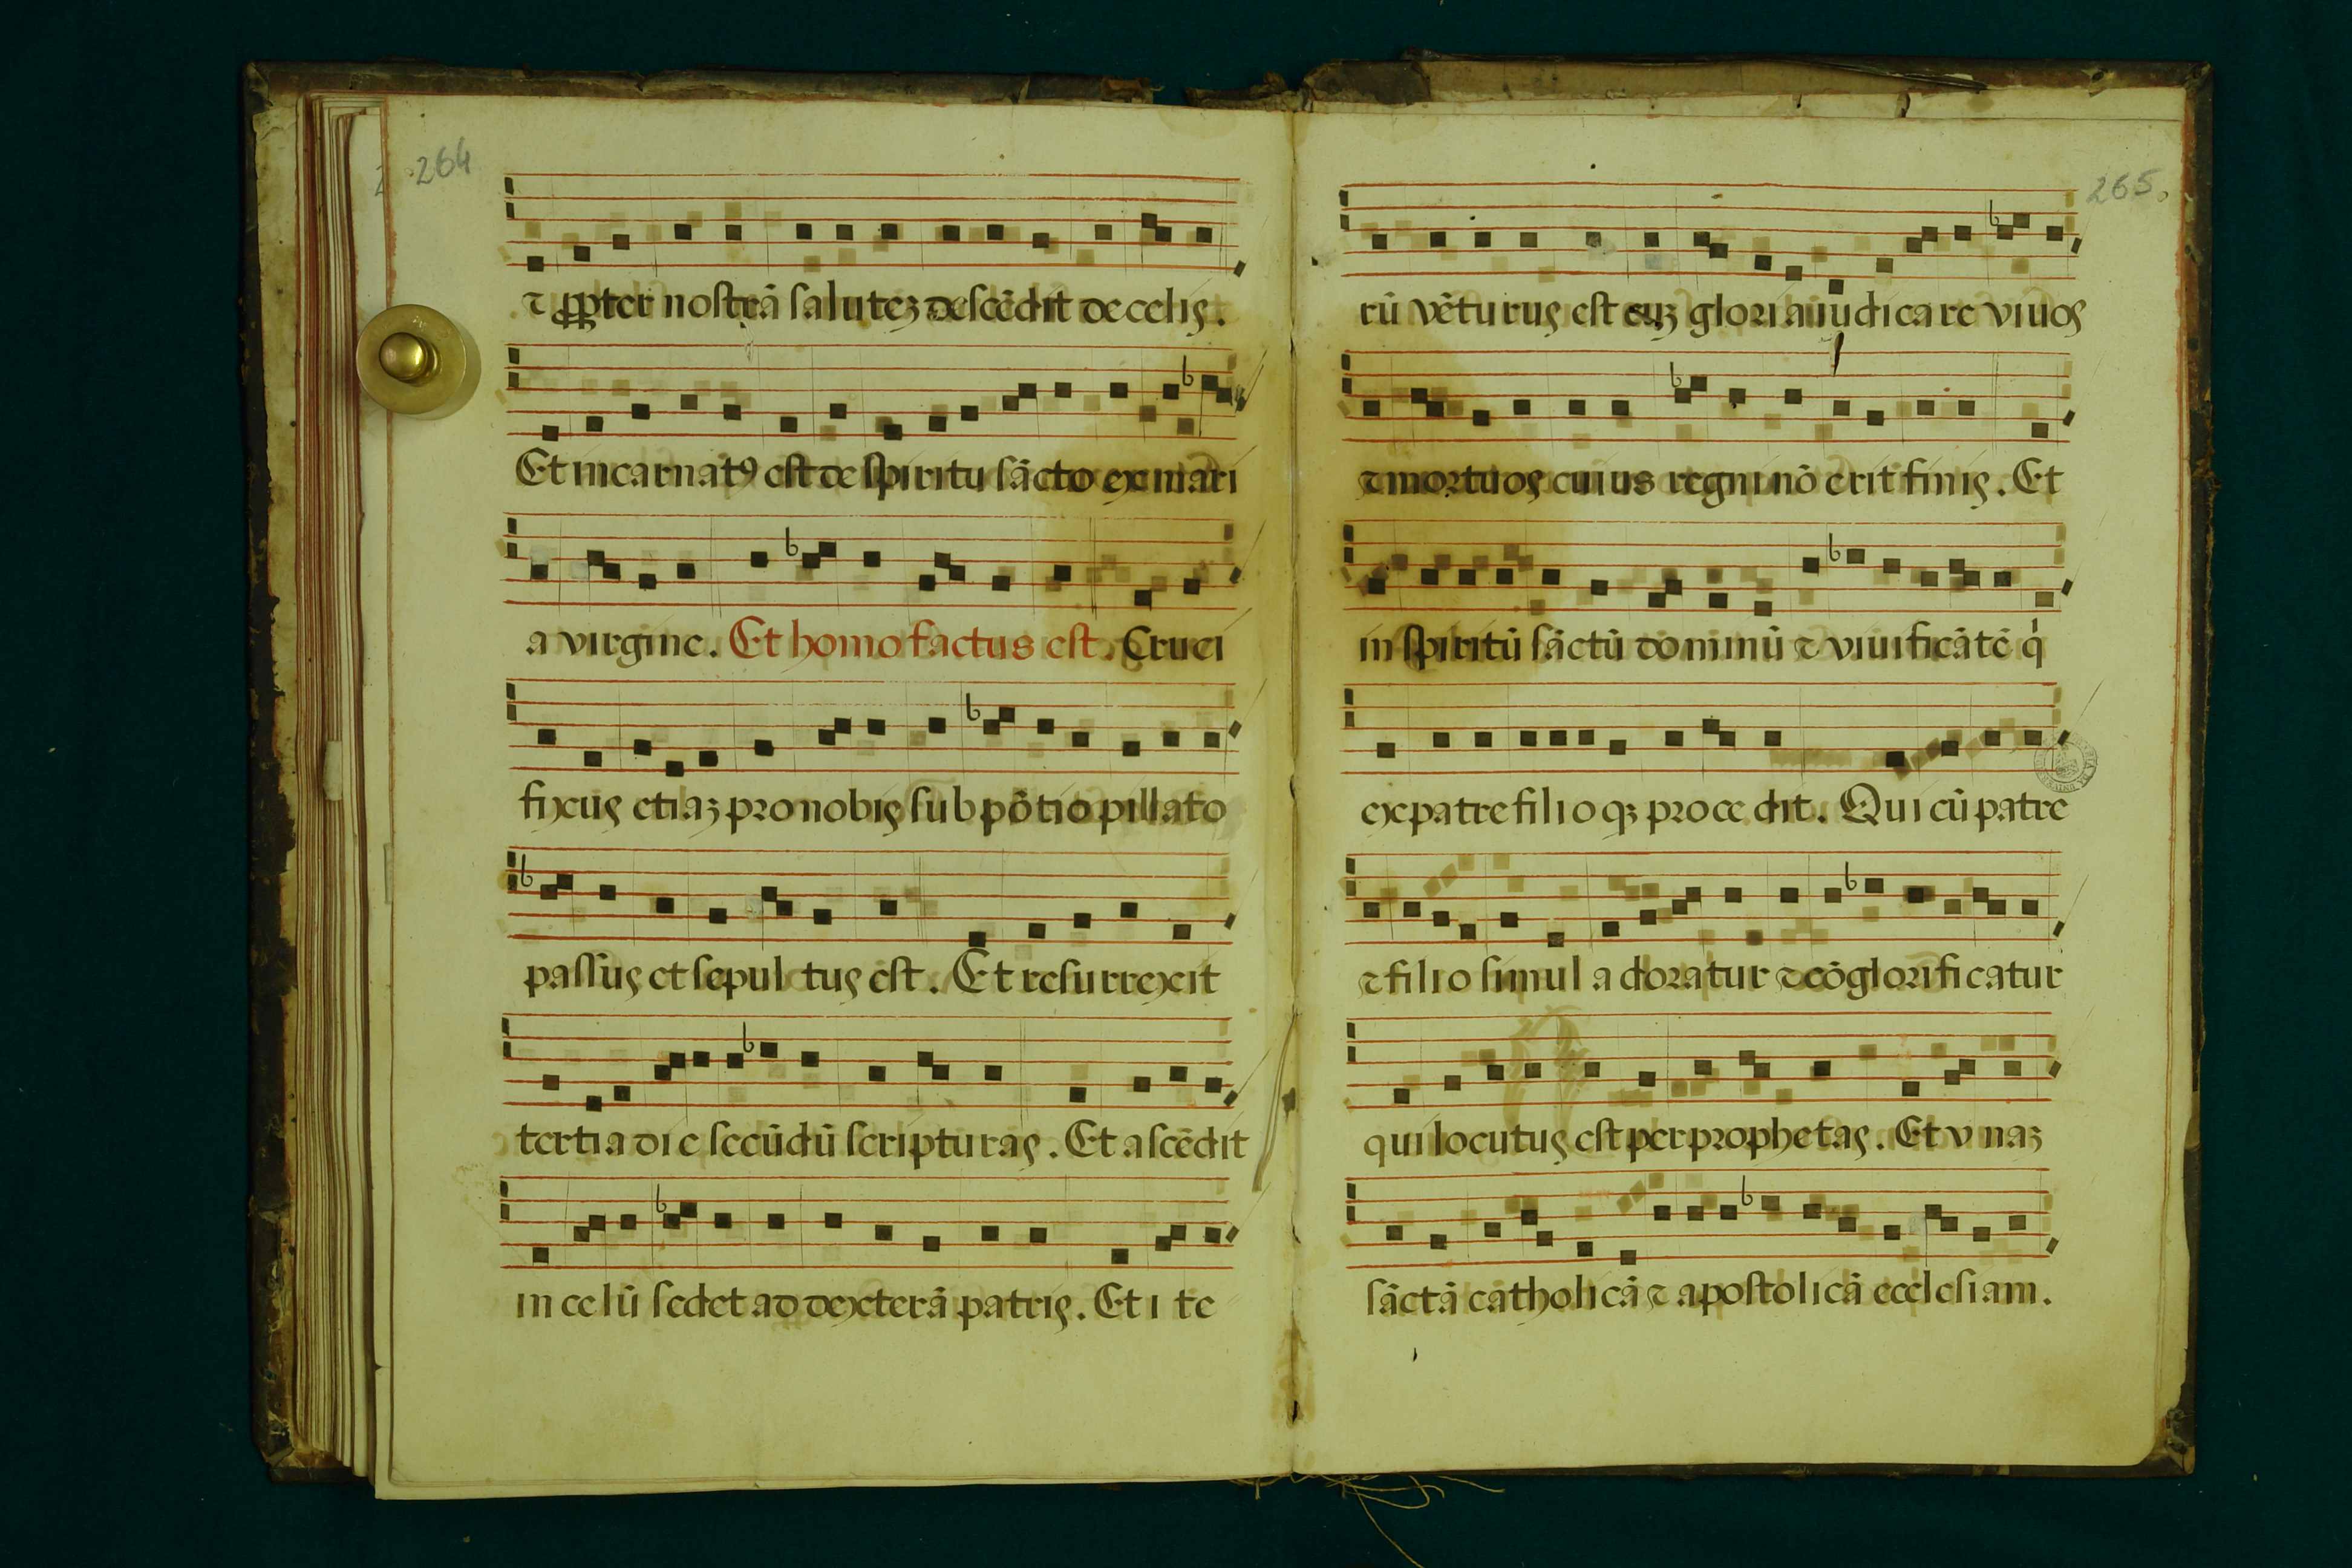 264
⁊ ꝓpter nostrā saluteȝ descēdit de celis.
Et incarnatꝰ est de spiritu sācto ex mari
a virgine. Et homo factus est. Cruci
fixus etiaȝ pro nobis sub pōtio pillato
passus et sepul tus est. Et resurrexit
tertia die secūdū scripturas. Et ascēdit
in celū sedet ad dexterā patris. Et i te
265.
rū vēturus est cuȝ gloria iudicare viuos
⁊ mortuos cuius regni nō erit finis. Et
in spiritū sāctū dominū ⁊ viuificātē q̇
ex patre filioqȝ procedit. Qui cū patre
⁊ filio simul adoratur ⁊ cōglorificatur
qui locutus est per prophetas. Et vnaȝ
sāctā catholicā ⁊ apostolicā ecclesiam.